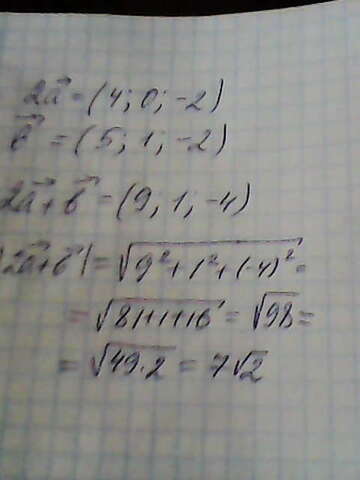 2a⃗ = (4; 0; -2)
b⃗ = (5; 1; -2)
2a⃗ + b⃗ = (9; 1; -4)
|2a⃗ + b⃗| = √(9² + 1² + (-4)²) =
= √(81+1+16) = √98 =
= √(49·2) = 7√2